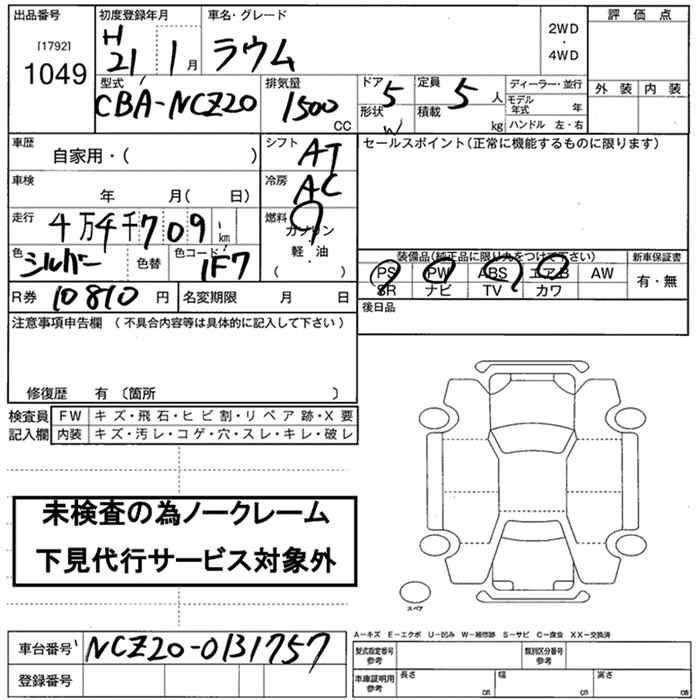 出品番号 初度登録年月 車名・グレード 評価点
[1792] H 2WD
1049 21 1月 ラウム ・ 4WD
型式 排気量 ドア 5 定員 5人 ディーラー・並行 外装 内装
CBA-NCZ20 1500 CC 形状 W 積載 kg モデル年式 年
ハンドル 左・右
車歴 シフト AT セールスポイント(正常に機能するものに限ります)
自家用・( )
車検 冷房 AC
年 月( 日)
走行 4万4千709 km 燃料 ガソリン
軽・油
( )
色 シルバー 色替 色コード 1F7
装備品(純正品に限り丸をつけて下さい) 新車保証書
PS PW ABS エアB AW 有・無
SR ナビ TV カワ
R券 10810 円 名変期限 月 日 後日品
注意事項申告欄 (不具合内容等は具体的に記入して下さい)
修復歴 有 〔箇所 〕
検査員 FW キズ・飛石・ヒビ割・リペア跡・X要
記入欄 内装 キズ・汚レ・コゲ・穴・スレ・キレ・破レ
未検査の為ノークレーム
下見代行サービス対象外
スペア
A-キズ E-エクボ U-凹み W-補修跡 S-サビ C-腐食 XX-交換済
車台番号 NCZ20-0131757
型式指定番号 参考 類別区分番号 参考
登録番号
車庫証明用 参考 長さ cm 幅 cm 高さ cm